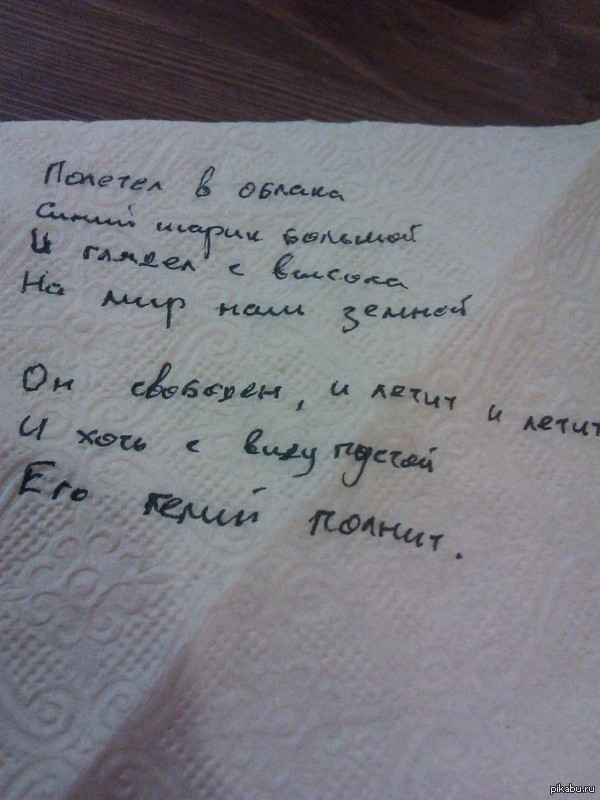 Полетел в облака
Синий шарик большой
И глядел с высока
На мир наш земной
Он свободен, и летит и летит
И хоть с виду пустой
Его гелий полнит.
pikabu.ru